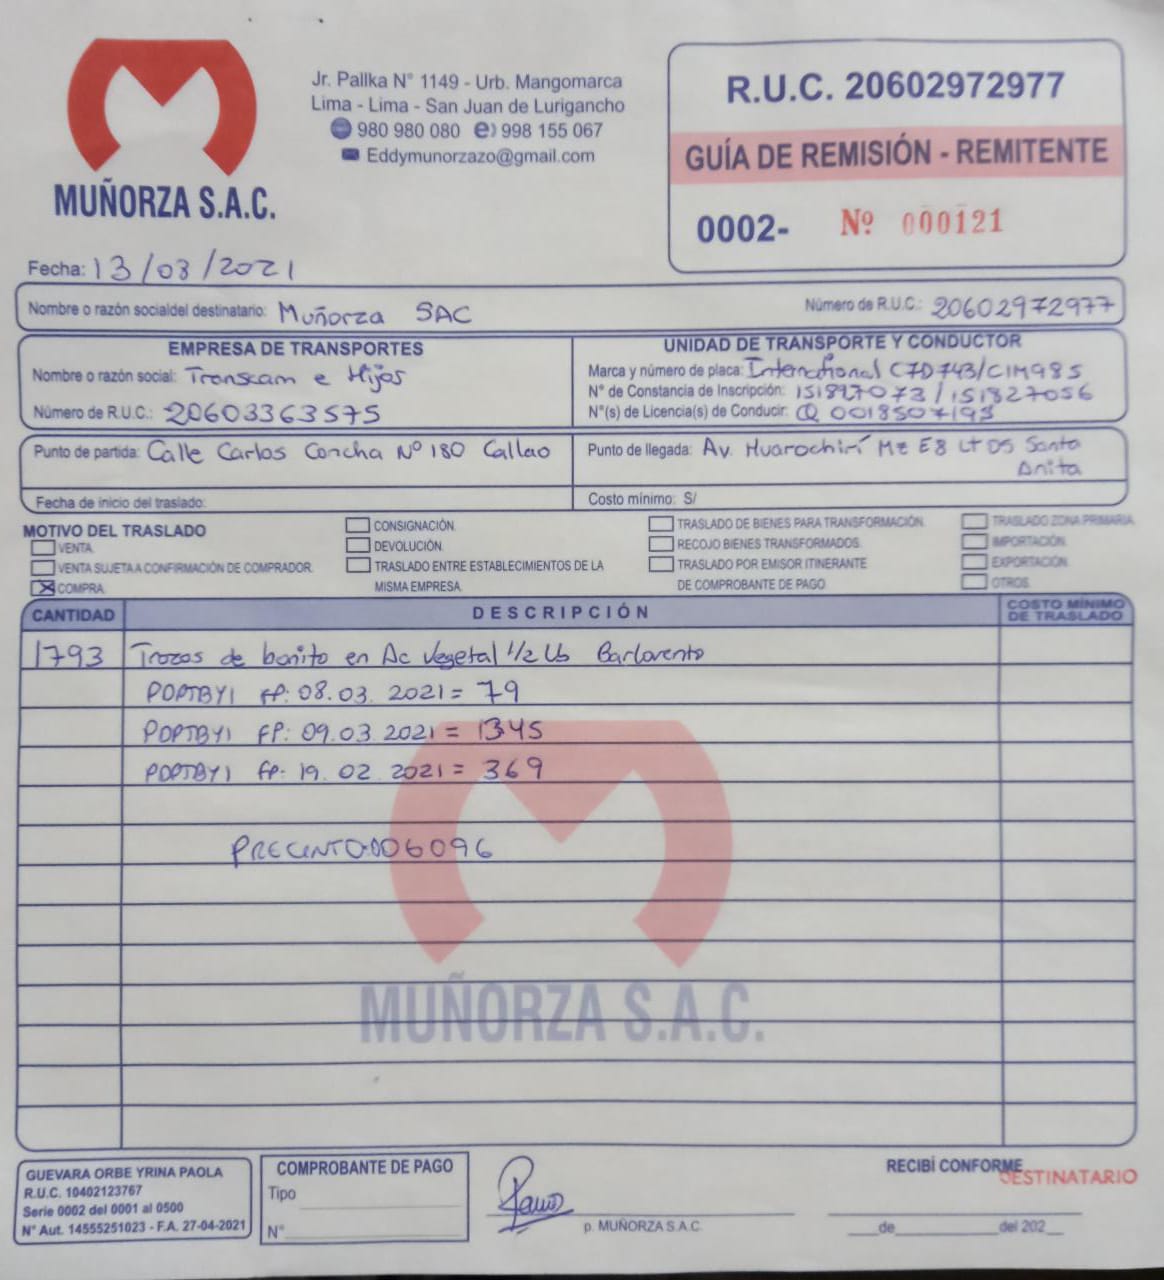 MUÑORZA S.A.C.
Jr. Pallka N° 1149 - Urb. Mangomarca
Lima - Lima - San Juan de Lurigancho
980 980 080 998 155 067
Eddymunorzazo@gmail.com
R.U.C. 20602972977
GUÍA DE REMISIÓN - REMITENTE
0002- Nº 000121
Fecha: 13/03/2021
Nombre o razón socialdel destinatario: Muñorza SAC Número de R.U.C.: 20602972977
EMPRESA DE TRANSPORTES
Nombre o razón social: Transcam e Hijos
Número de R.U.C.: 20603363575
UNIDAD DE TRANSPORTE Y CONDUCTOR
Marca y número de placa: International C7D743/C1M985
N° de Constancia de Inscripción: 151827056
N°(s) de Licencia(s) de Conducir: Q
Punto de partida: Calle Carlos Concha Nº 180 Callao
Punto de llegada: Av. Huarochirí Mz E8 Lt 05 Santa
Anita
Fecha de inicio del traslado:
Costo mínimo: S/
MOTIVO DEL TRASLADO
VENTA.
VENTA SUJETA A CONFIRMACIÓN DE COMPRADOR.
COMPRA.
CONSIGNACIÓN.
DEVOLUCIÓN.
TRASLADO ENTRE ESTABLECIMIENTOS DE LA
MISMA EMPRESA.
TRASLADO DE BIENES PARA TRANSFORMACIÓN.
RECOJO BIENES TRANSFORMADOS.
TRASLADO POR EMISOR ITINERANTE
DE COMPROBANTE DE PAGO.
TRASLADO ZONA PRIMARIA.
IMPORTACIÓN.
EXPORTACIÓN.
OTROS.
CANTIDAD DESCRIPCIÓN COSTO MÍNIMO
DE TRASLADO
1793 Trozos de bonito en Ac vegetal 1/2 Lb Barlovento
FP: 08.03.2021 = 79
FP: 09.03.2021 = 1345
FP: 19.02.2021 = 369
PRECINTO:006096
MUÑORZA S.A.C.
GUEVARA ORBE YRINA PAOLA
R.U.C. 10402123767
Serie 0002 del 0001 al 0500
N° Aut. 14555251023 - F.A. 27-04-2021
COMPROBANTE DE PAGO
Tipo
N°
p. MUÑORZA S.A.C.
RECIBÍ CONFORME
DESTINATARIO
de del 202